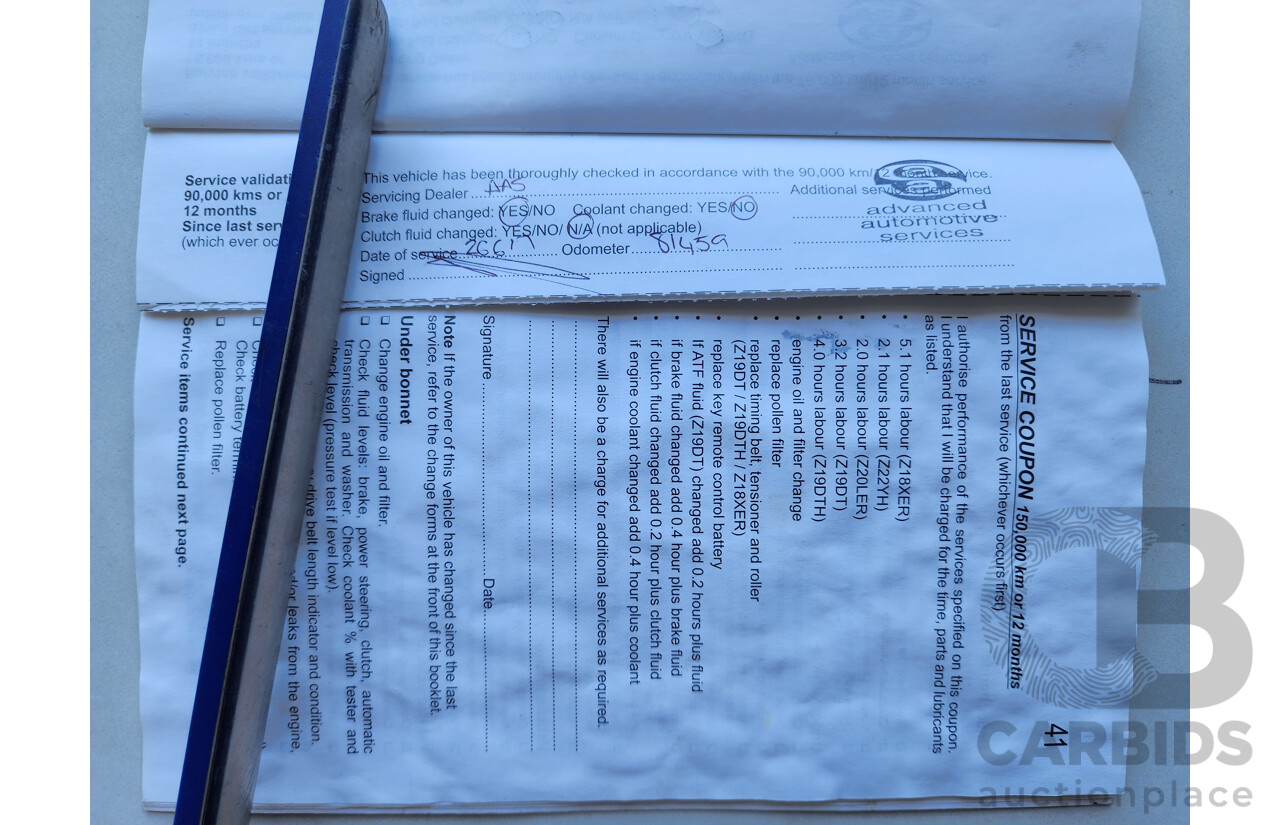 Service validati
90,000 kms or
12 months
Since last ser
(which ever oc
This vehicle has been thoroughly checked in accordance with the 90,000 km/12 month service.
Servicing Dealer AAS
Brake fluid changed: YES/NO Coolant changed: YES/NO
Clutch fluid changed: YES/NO/ N/A (not applicable)
Date of service Odometer 81459
Signed
Additional services performed
advanced
automotive
services
SERVICE COUPON 150,000 km or 12 months
from the last service (whichever occurs first)
41
I authorise performance of the services specified on this coupon.
I understand that I will be charged for the time, parts and lubricants
as listed.
• 5.1 hours labour (Z18XER)
• 2.1 hours labour (Z22YH)
• 2.0 hours labour (Z20LER)
• 3.2 hours labour (Z19DT)
• 4.0 hours labour (Z19DTH)
• engine oil and filter change
• replace pollen filter
• replace timing belt, tensioner and roller
(Z19DT / Z19DTH / Z18XER)
• replace key remote control battery
• If ATF fluid (Z19DT) changed add 0.2 hours plus fluid
• if brake fluid changed add 0.4 hour plus brake fluid
• if clutch fluid changed add 0.2 hour plus clutch fluid
• if engine coolant changed add 0.4 hour plus coolant
There will also be a charge for additional services as required.
Signature Date
Note If the owner of this vehicle has changed since the last
service, refer to the change forms at the front of this booklet.
Under bonnet
❑ Change engine oil and filter.
❑ Check fluid levels: brake, power steering, clutch, automatic
transmission and washer. Check coolant % with tester and
check level (pressure test if level low).
drive belt length indicator and condition.
leaks from the engine,
Check battery
❑ Replace pollen filter.
Service items continued next page.
CB
CARBIDS
auctionplace